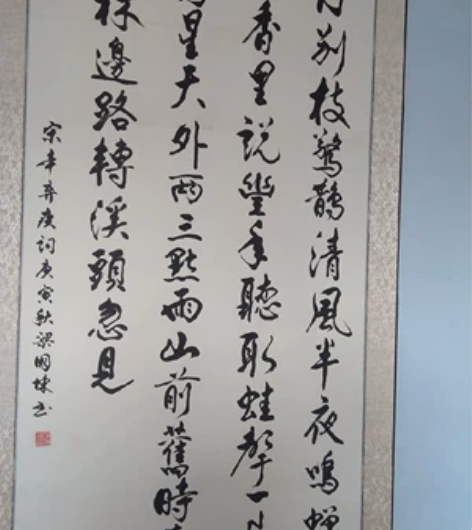 月别枝驚鵲清風半夜鳴蟬
香里説豐年聽取蛙聲一
星天外兩三點雨山前舊時
林邊路轉溪頭忽見
宗辛弃疾詞庚寅秋梁國棟书